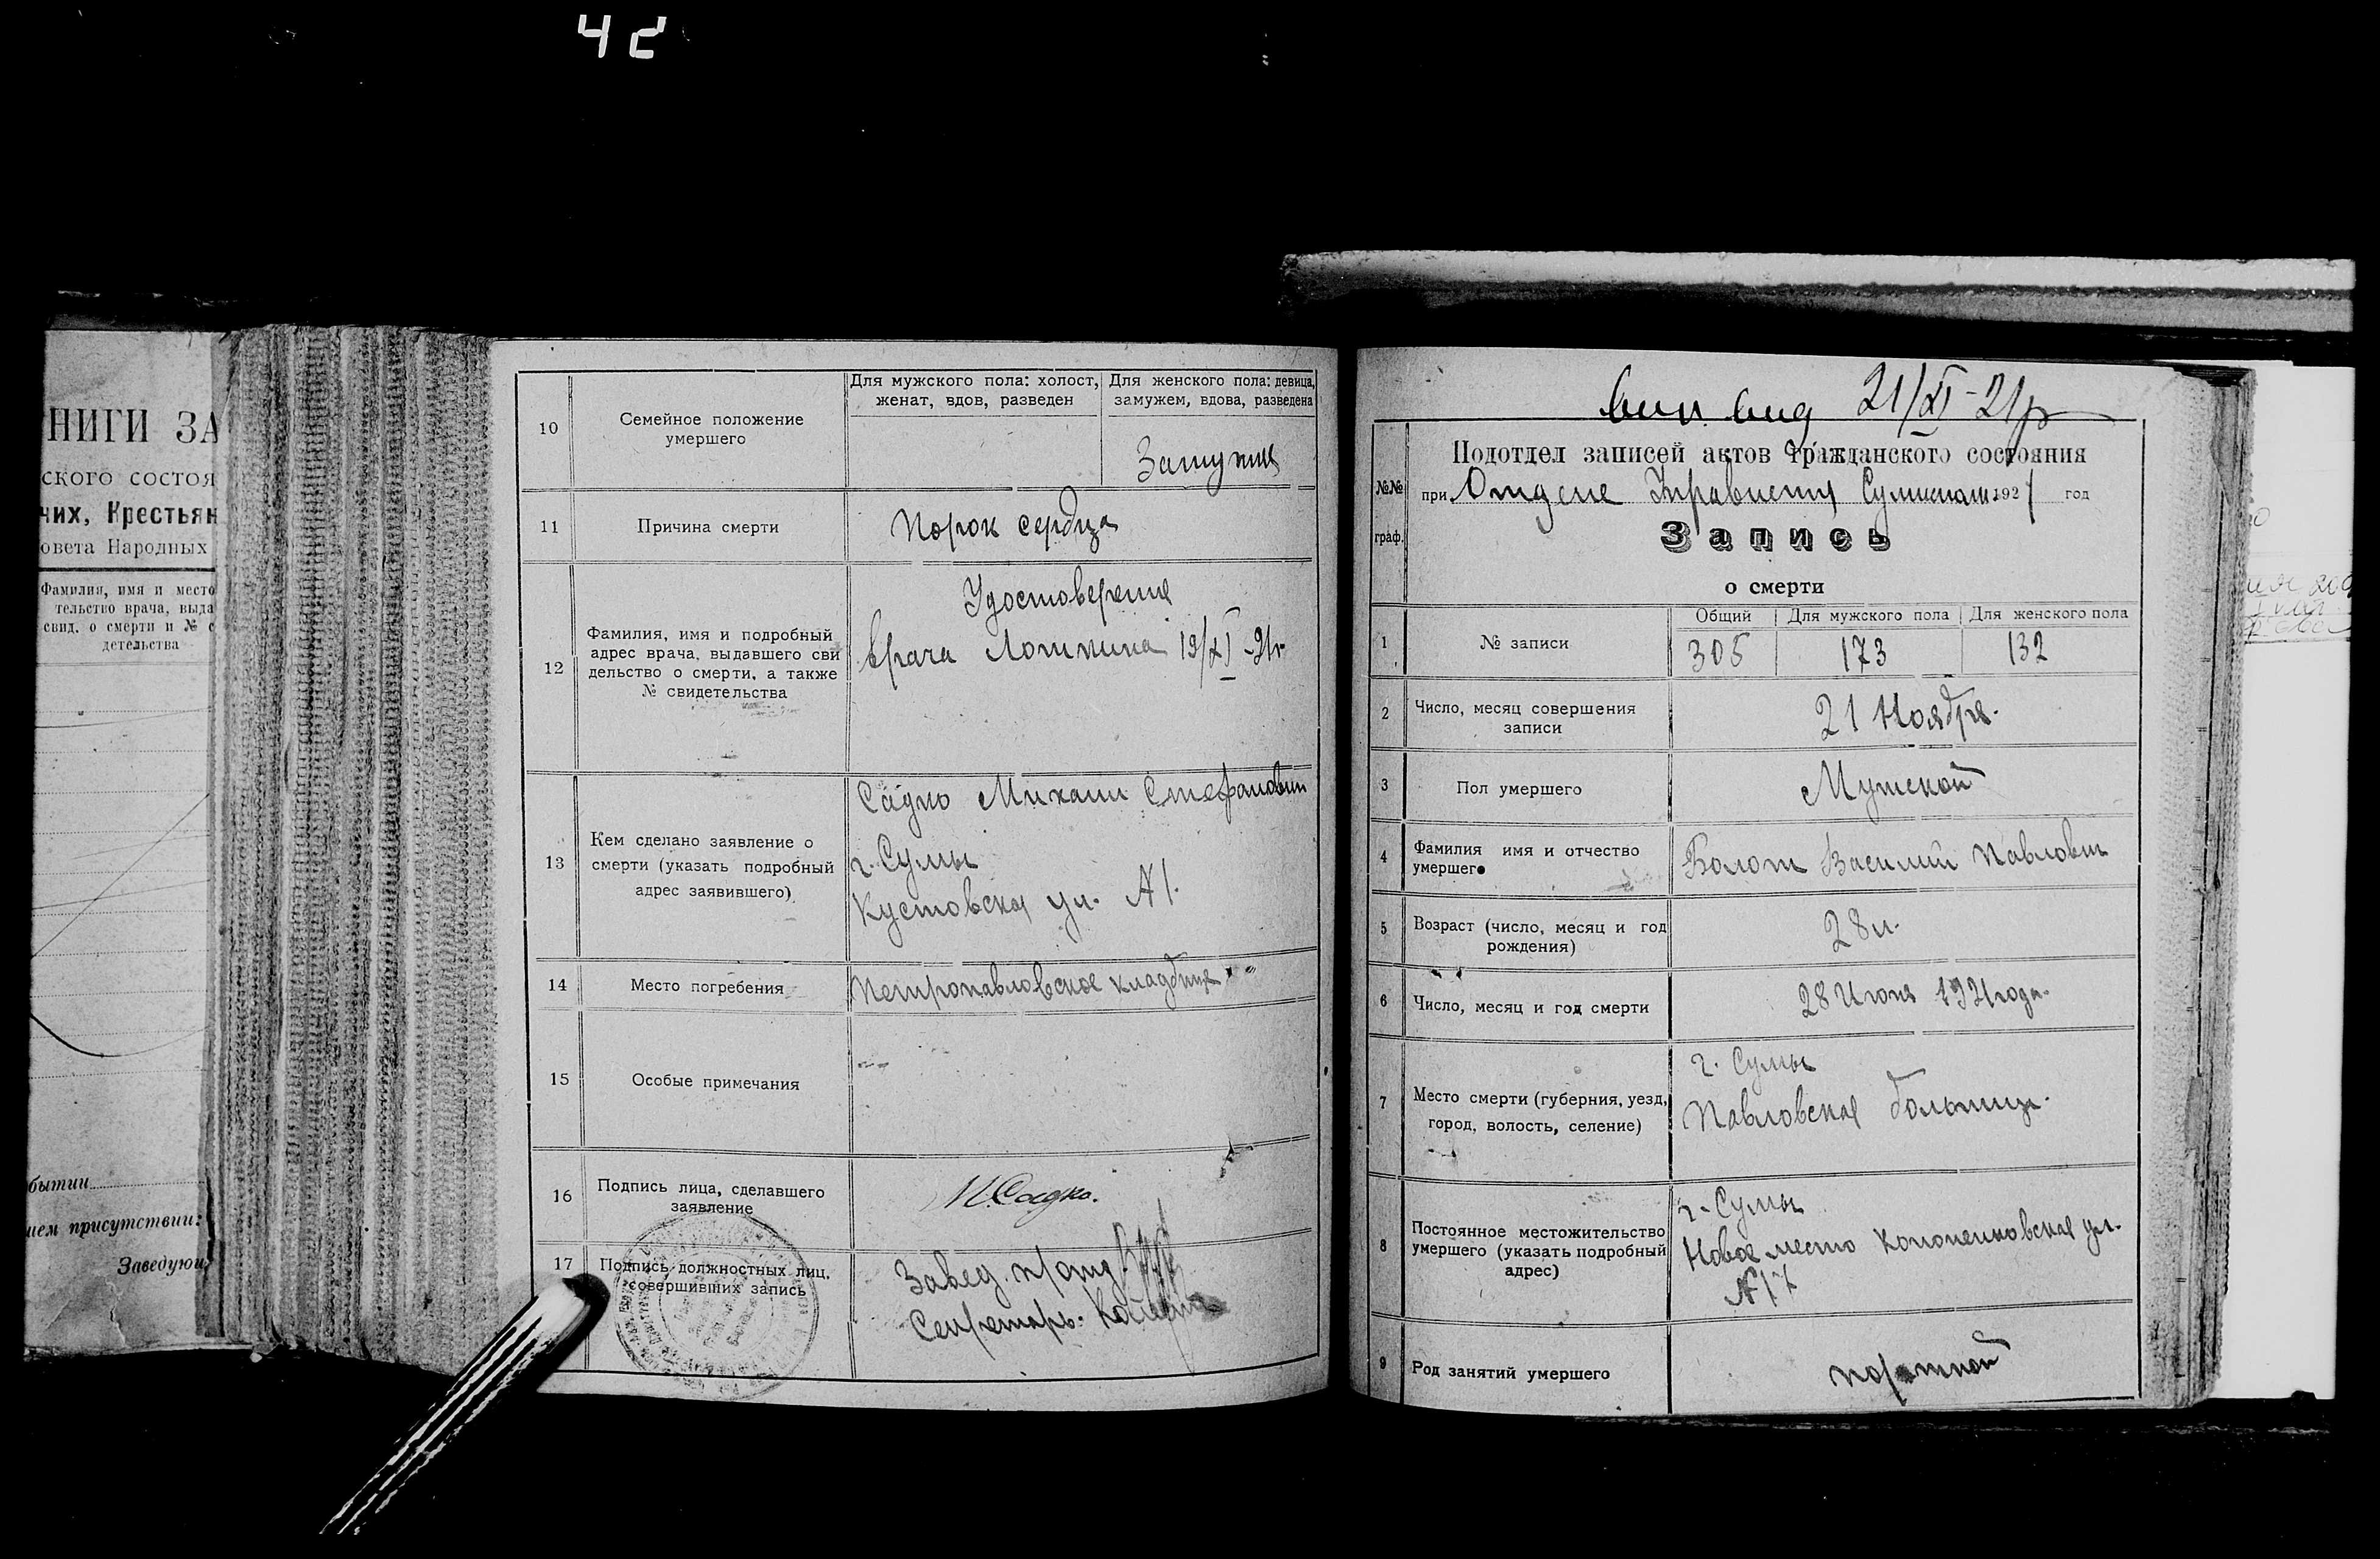 42
НИГИ ЗА
ского состоя
чих, Крестьян
овета Народных
Фамилия, имя и место
тельство врача, выда
свид. о смерти и № с
детельства
бытии
ием присутствии:
Заведующ
10
Семейное положение
умершего
Для мужского пола: холост,
женат, вдов, разведен
Для женского пола: девица,
замужем, вдова, разведена
Замужня
11
Причина смерти
Порок сердца
12
Фамилия, имя и подробный
адрес врача, выдавшего сви
дельство о смерти, а также
№ свидетельства
Удостоверение
врача 19/XI-21г
13
Кем сделано заявление о
смерти (указать подробный
адрес заявившего)
Садко Михаил Стефанович
г. Сумы
Кустовская ул. № 1.
14
Место погребения
Петропавловское кладбище
15
Особые примечания
16
Подпись лица, сделавшего
заявление
М. Садко.
17
Подпись должностных лиц,
совершивших запись
Завед. п/отд
Секретарь.
21/XI-21р
№№
граф.
Подотдел записей актов Гражданского состояния
при Отделе Управления 1921 год
Запись
о смерти
1
№ записи
Общий
Для мужского пола
Для женского пола
305
173
132
2
Число, месяц совершения
записи
21 Ноября.
3
Пол умершего
Мужской
4
Фамилия имя и отчество
умершего
Болот Василий Павлович
5
Возраст (число, месяц и год
рождения)
28 л.
6
Число, месяц и год смерти
28 Июня 1921 года.
7
Место смерти (губерния, уезд,
город, волость, селение)
г. Сумы
Павловская больница.
8
Постоянное местожительство
умершего (указать подробный
адрес)
г. Сумы
Новое место Кононенковская ул.
№ 17
9
Род занятий умершего
портной